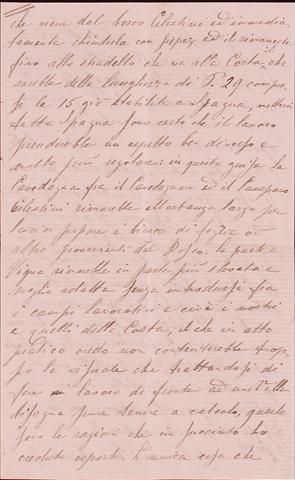 che viene dal bosco Celestini ed immedia,
tamente chiuderla con siepe, ed il rimanente
fino allo stradello che va alla Costa, che
sarebbe della lunghezza di P. 29 compre,
se le 15 già stabilite a Spagna,
fatta Spagna sono certo che il lavoro
prenderebbe un aspetto ben diverso e
molto più regolare: in questa guisa la
Cavedagna fra il ed il Campo
Celestini rimarrebbe abbastanza larga per
lasciar passare i di foglia od
altro provenienti dal bosco, la parte a
Vigna rimarrebbe in parte più elevata e
meglio adatta senza introdursi fra
i campi lavorativi e cioè i nostri
e quelli della Costa, il che in atto
pratico credo non converrebbe trop,
po la quale trattandosi di
fare un lavoro di fronte ad
bisogna pure tenere a calcolo, queste
sono le ragioni che in succinto ho
creduto esporti. L'unica cosa che